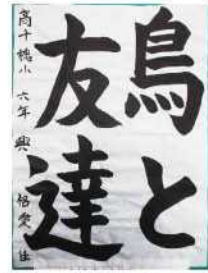 鳥と
友達
高千穂小 六年 興